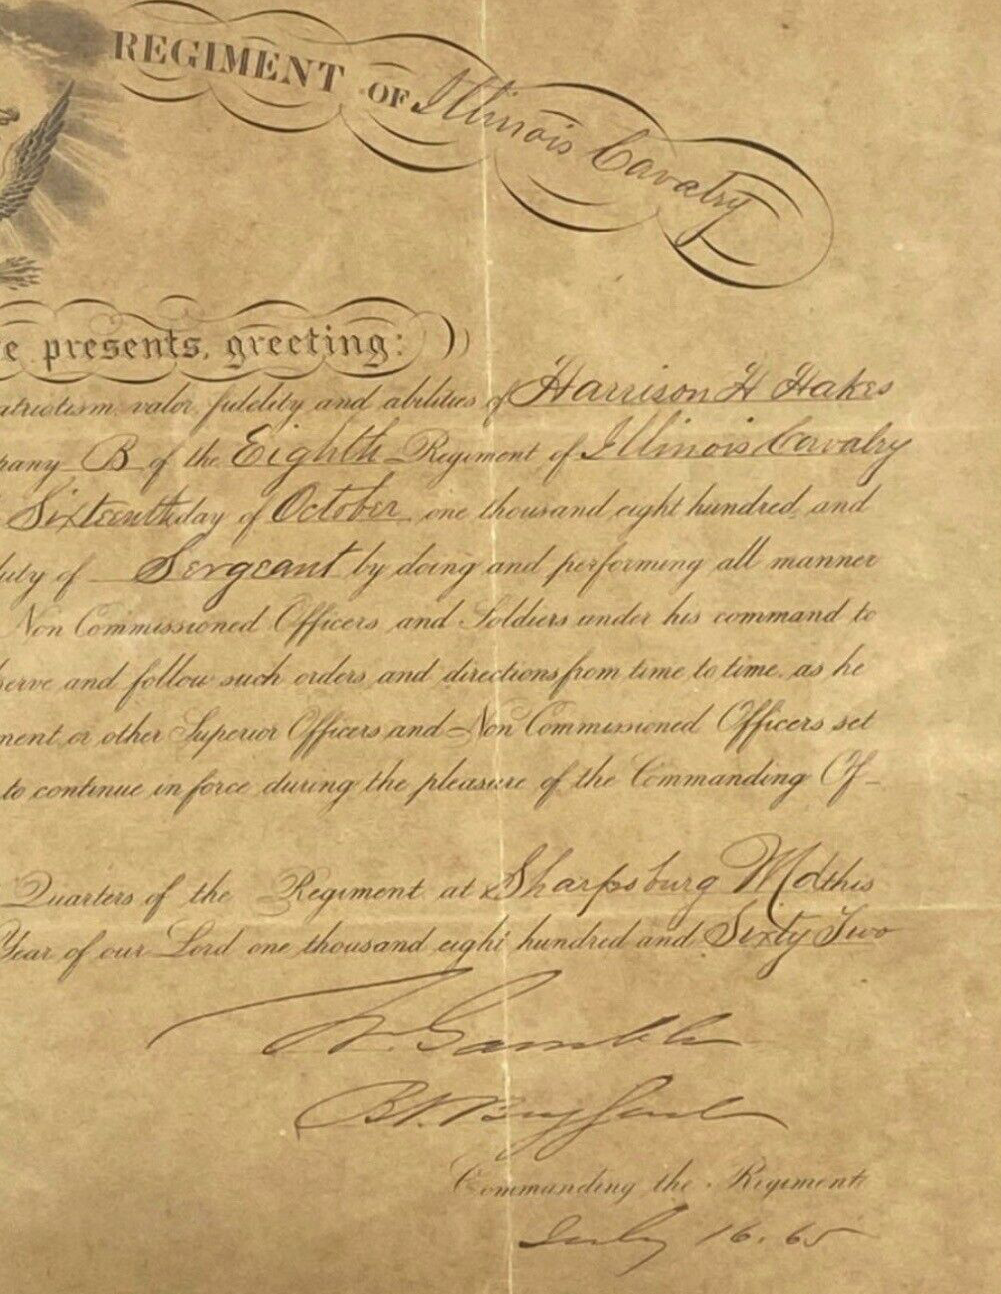 REGIMENT OF Illinois Cavalry
e presents, greeting:
atriotism, valor, fidelity and abilities of Harrison H Hakes
pany B of the Eighth Regiment of Illinois Cavalry
Sixteenth day of October one thousand eight hundred and
duty of Sergeant by doing and performing all manner
Non Commissioned Officers and Soldiers under his command to
serve and follow such orders and directions from time to time, as he
ment or other Superior Officers and Non Commissioned Officers set
to continue in force during the pleasure of the Commanding Of-
Quarters of the Regiment at Sharpsburg Md this
Year of our Lord one thousand eight hundred and Sixty Two
W. Gamble
Bt. Brig Genl
Commanding the Regiment
July 16. 65